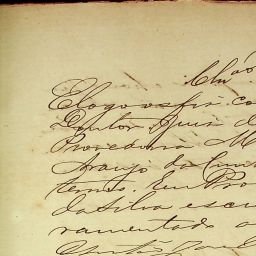 Clu ão
E logo os fis. co
Doutor Juis d
Provedoria M
Araujo da Cun
termo. Eu Pro
da Silva escri
ramentado o